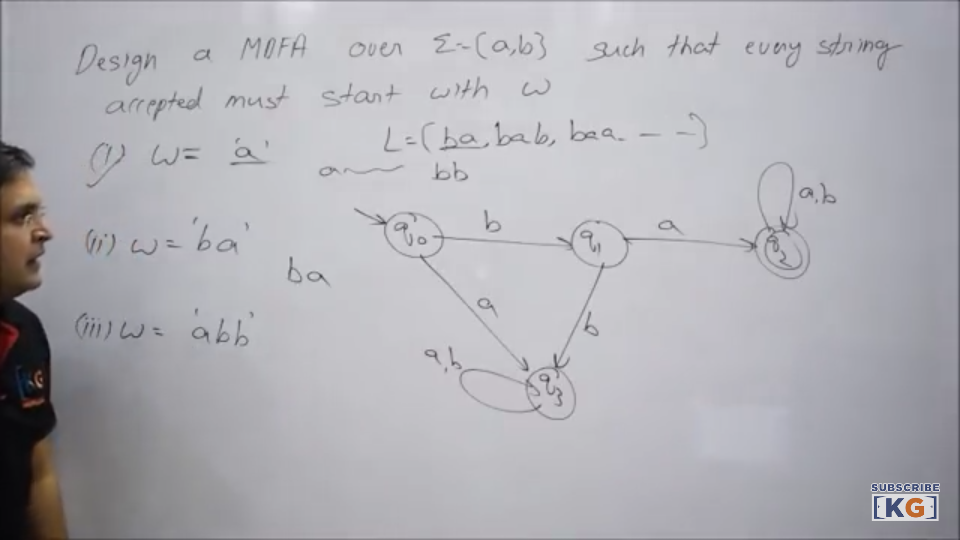 Design a MDFA over Σ={a,b} such that every string
accepted must start with w
(i) w= 'a'
L={ba, bab, baa. - -}
a
bb
(ii) w= 'ba'
ba
(iii) w= 'abb'
q0
b
q1
a
q2
a,b
a
b
a,b
q3
KG
SUBSCRIBE
[KG]